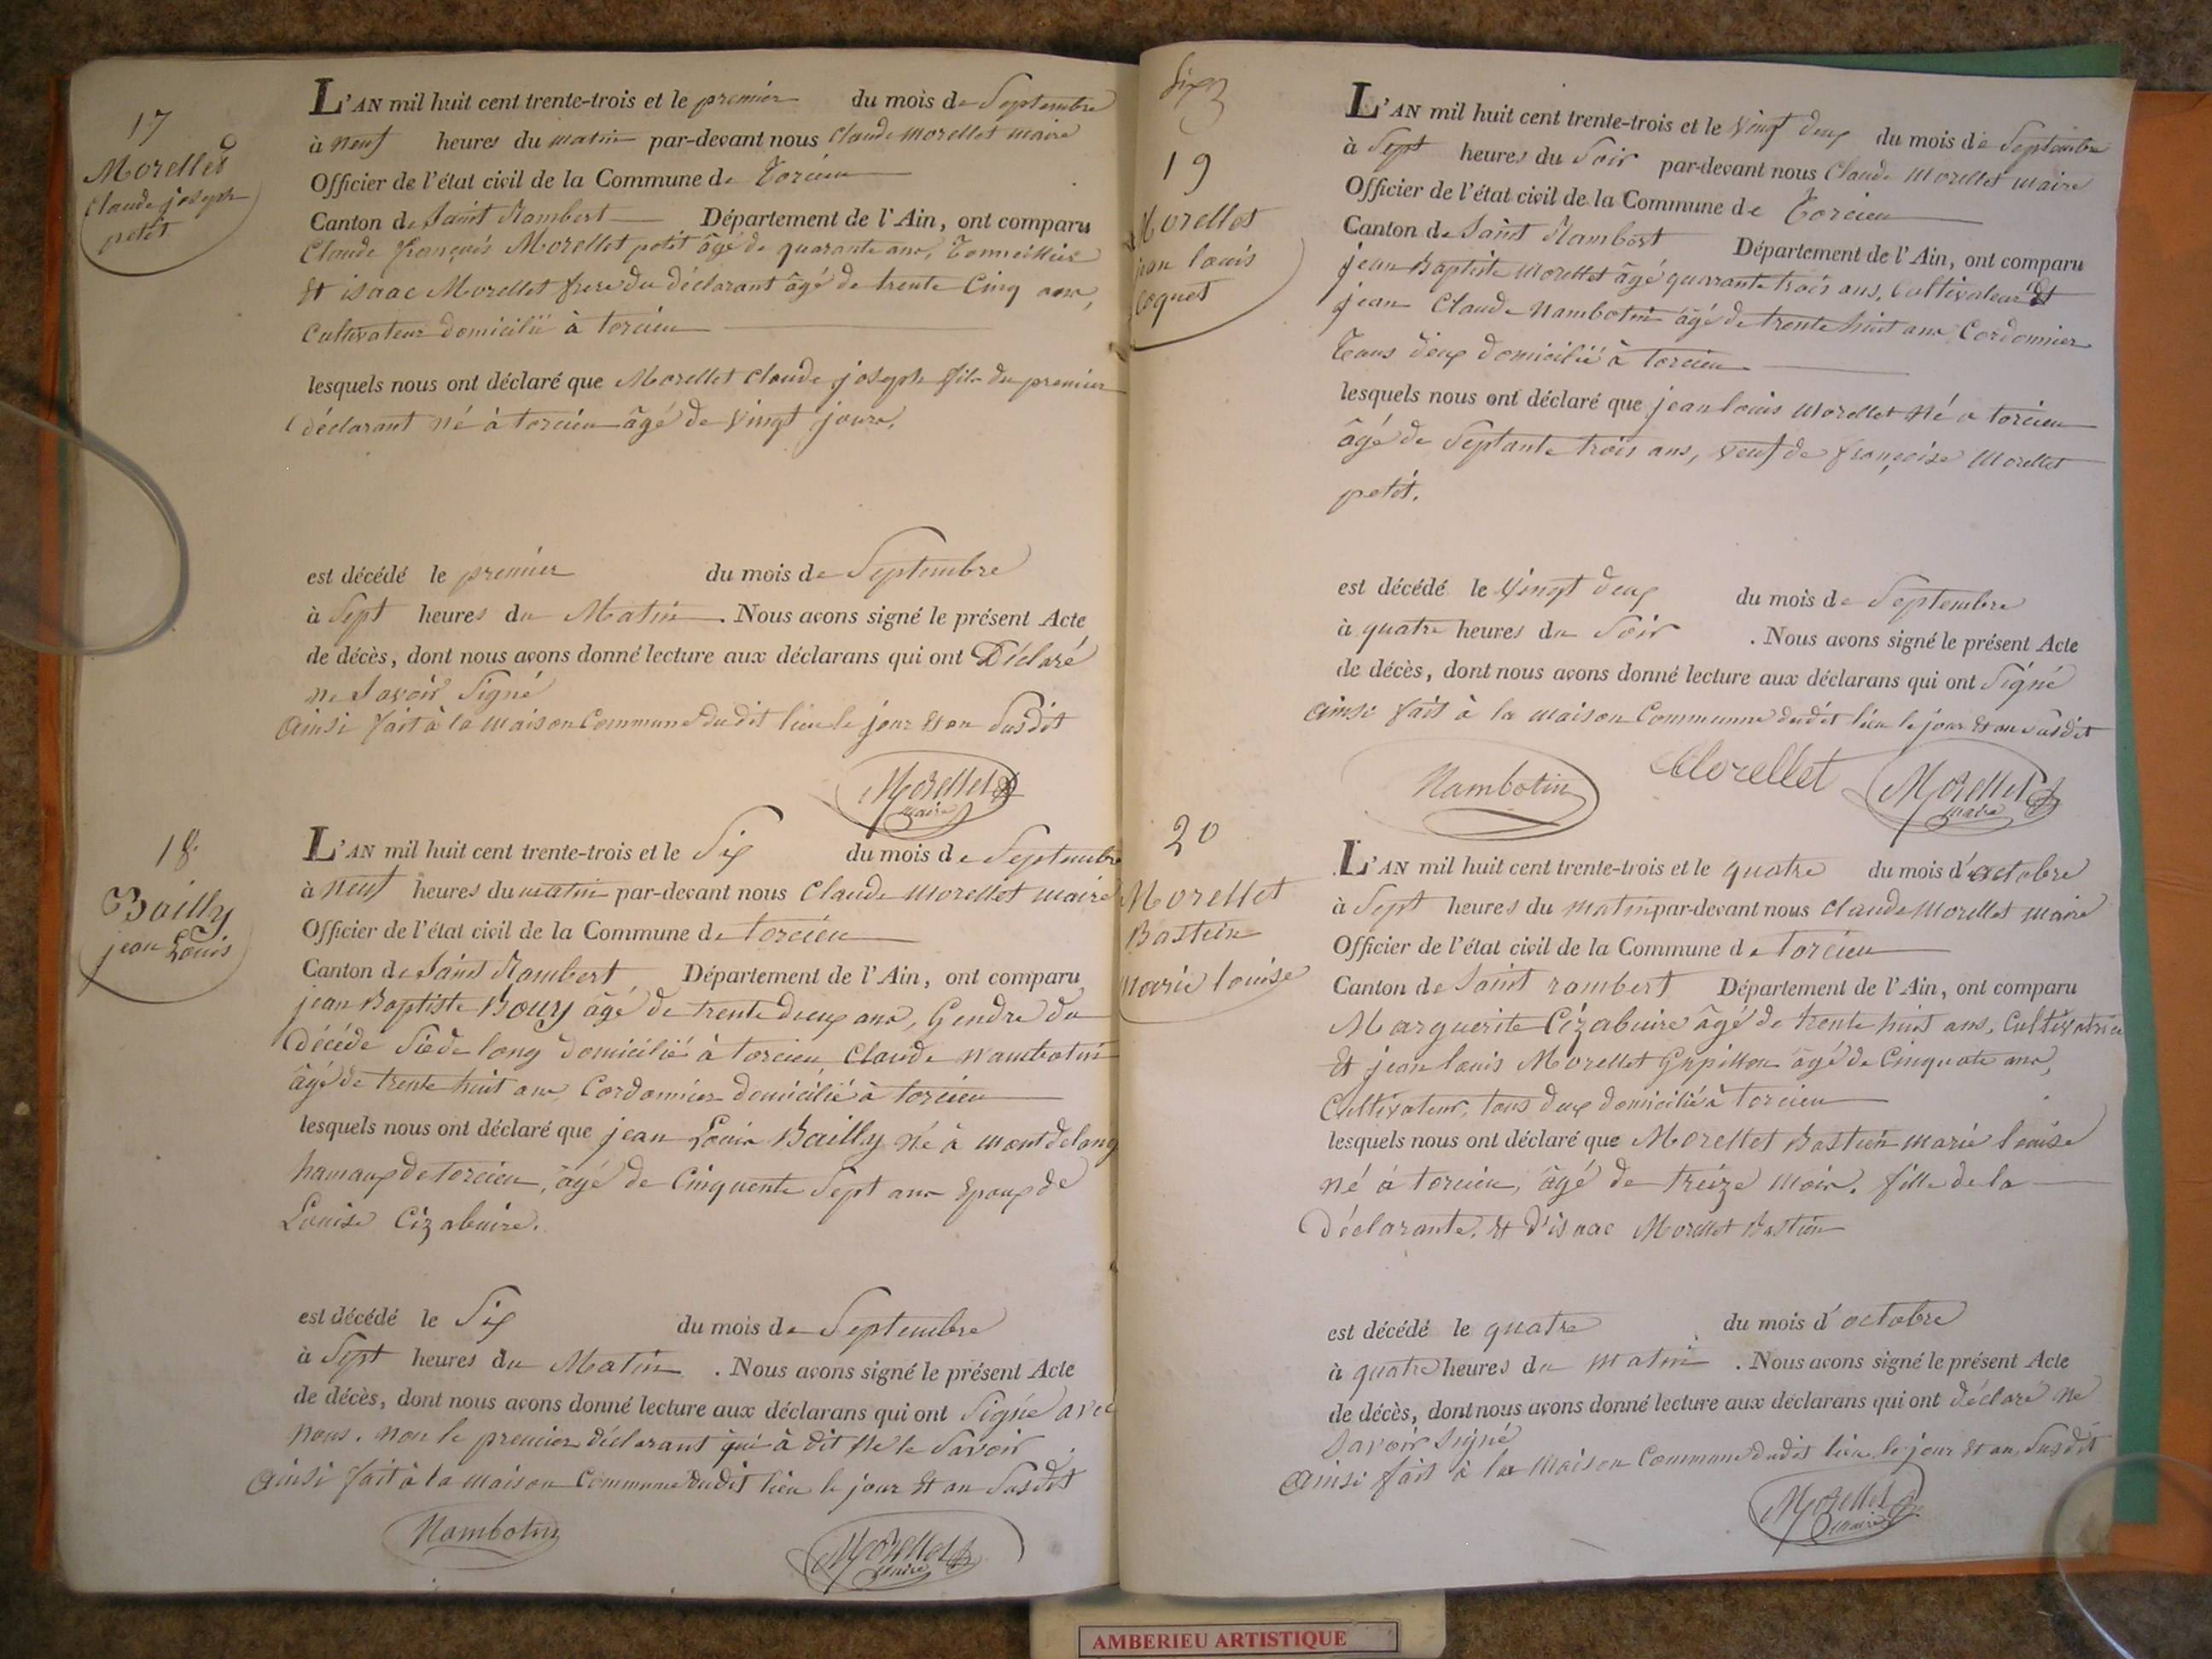 17
Morellet
Claude joseph
petit
L'AN mil huit cent trente-trois et le premier du mois de Septembre
à neuf heures du matin par-devant nous Claude Morellet maire
Officier de l'état civil de la Commune de Torcieu
Canton de Saint Rambert Département de l'Ain, ont comparu
Claude françois Morellet petit âgé de quarante ans, Tonnellier
Et isaac Morellet frere du déclarant âgé de trente Cinq ans,
Cultivateur domicilié à torcieu
lesquels nous ont déclaré que Morellet Claude joseph fils du premier
déclarant né à torcieu âgé de Vingt jours.
est décédé le premier du mois de Septembre
à Sept heures du Matin. Nous avons signé le présent Acte
de décès, dont nous avons donné lecture aux déclarans qui ont Déclaré
ne Savoir Signé
Ainsi fait à la maison Commune dudit lieu le jour Et an Susdit
Morellet
maire
18.
Bailly
jean Louis
L'AN mil huit cent trente-trois et le Six du mois de Septembre
à neuf heures du matin par-devant nous Claude Morellet maire
Officier de l'état civil de la Commune de torcieu
Canton de Saint Rambert Département de l'Ain, ont comparu
jean Baptiste Bouy âgé de trente deux ans, Gendre du
Décédé domicilié à torcieu, Claude Nambotin
âgé de trente huit ans Cordonnier domicilié à torcieu
lesquels nous ont déclaré que jean Louis Bailly né à mont de lang
hamaux de torcieu, âgé de Cinquente Sept ans Epoux de
Louise Cizabuire.
est décédé le Six du mois de Septembre
à Sept heures du Matin. Nous avons signé le présent Acte
de décès, dont nous avons donné lecture aux déclarans qui ont Signé avec
nous. non le premier déclarant qui à dit ne le Savoir
Ainsi fait à la maison Commune dudit lieu le jour Et an Susdit
Nambotin
Morellet
maire
19
Morellet
jean louis
Coquet
L'AN mil huit cent trente-trois et le Vingt deux du mois de Septembre
à Sept heures du Soir par-devant nous Claude Morellet maire
Officier de l'état civil de la Commune de Torcieu
Canton de Saint Rambert Département de l'Ain, ont comparu
jean Baptiste Morellet âgé quarante trois ans, Cultivateur Et
jean Claude Nambotin âgé de trente huit ans Cordonnier
Tous deux domicilié à torcieu
lesquels nous ont déclaré que jean louis Morellet né a torcieu
âgé de Septante trois ans, veuf de françoise Morellet
petit.
est décédé le Vingt deux du mois de Septembre
à quatre heures du Soir. Nous avons signé le présent Acte
de décès, dont nous avons donné lecture aux déclarans qui ont Signé
Ainsi fait à la maison Commune dudit lieu le jour Et an Susdit
Nambotin Morellet Morellet
maire
20
Morellet
Bastien
Marie louise
L'AN mil huit cent trente-trois et le quatre du mois d'octobre
à Sept heures du matin par-devant nous Claude Morellet maire
Officier de l'état civil de la Commune de torcieu
Canton de Saint rambert Département de l'Ain, ont comparu
Marguerite Cizabuire âgé de trente huit ans, Cultivatrice
Et jean louis Morellet âgé de Cinquate ans,
Cultivateur, tous deux domicilié à torcieu
lesquels nous ont déclaré que Morellet Bastien marie louise
né à torcieu, âgé de treize mois. fille de la
Déclarante, Et d'isaac Morellet Bastien
est décédé le quatre du mois d'octobre
à quatre heures du matin. Nous avons signé le présent Acte
de décès, dont nous avons donné lecture aux déclarans qui ont déclaré ne
Savoir Signé
Ainsi fait à la maison Commune dudit lieu le jour Et an Susdit
Morellet
maire
AMBERIEU ARTISTIQUE